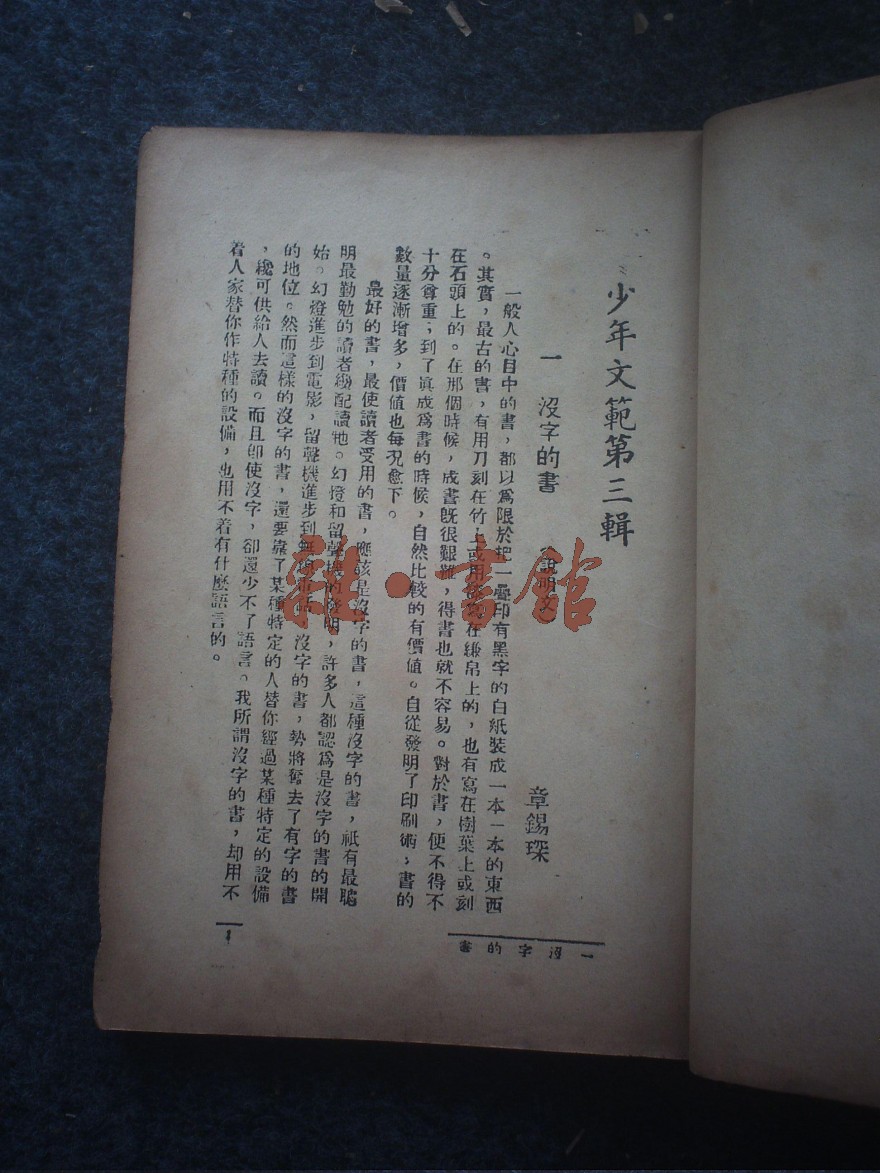 少年文範第三輯
一 沒字的書 (說明文)
章錫琛
一般人心目中的書，都以爲限於把一疊印有黑字的白紙裝成一本一本的東西
。其實，最古的書，有用刀刻在竹上或用漆寫在縑帛上的，也有寫在樹葉上或刻
在石頭上的。在那個時候，成書旣很艱難，得書也就不容易。對於書，便不得不
十分尊重；到了眞成爲書的時候，自然比較的有價值。自從發明了印刷術，書的
數量逐漸增多，價值也每况愈下。
最好的書，最使讀者受用的書，應該是沒字的書，這種沒字的書，祇有最聰
明最勤勉的讀者纔配讀牠。幻燈和留聲機的發明，許多人都認爲是沒字的書的開
始。幻燈進步到電影，留聲機進步到無線電話，沒字的書，勢將奪去了有字的書
的地位。然而這樣的沒字的書，還要靠了某種特定的人替你經過某種特定的設備
，纔可供給人去讀。而且卽使沒字，卻還少不了語言。我所謂沒字的書，却用不
着人家替你作特種的設備，也用不着有什麼語言的。
一 沒字的書
1
雜·書館